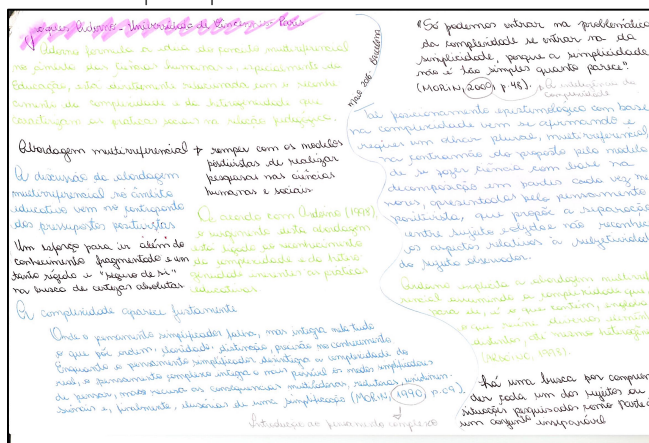 Jacques Ardoino - Universidade de Vincennes Paris
Ardoino formula a ideia do conceito multirreferencial
no âmbito das ciências humanas e, especialmente da
Educação, está diretamente relacionada com o reconhe
cimento da complexidade e da heterogeneidade que
caracterizam as práticas sociais na relação pedagógica.
Abordagem multirreferencial → rompe com os modelos
positivistas de realizar
pesquisas nas ciências
humanas e sociais
A discussão da abordagem
multirreferencial no âmbito
educativo vem no contraponto
dos pressupostos positivistas
Um esforço para ir além do
conhecimento fragmentado e um
tanto rígido e "seguro de si"
na busca de certezas absolutas
De acordo com Ardoino (1998),
o surgimento desta abordagem
está ligado ao reconhecimento
da complexidade e da hetero
geneidade inerentes às práticas
educativas.
A complexidade aparece justamente
Onde o pensamento simplificador falha, mas integra nela tudo
o que põe ordem, claridade, distinção, precisão no conhecimento
Enquanto o pensamento simplificador desintegra a complexidade do
real, o pensamento complexo integra o mais possível os modos simplificadores
de pensar, mas recusa as consequências mutiladoras, redutoras, unidimen-
sionais e, finalmente, ilusórias de uma simplificação (MORIN, 1990, p.09).
Introdução ao pensamento complexo
Maio 2016 - Brasília
"Só podemos entrar na problemática
da complexidade se entrar na da
simplicidade, porque a simplicidade
não é tão simples quanto parece".
(MORIN, 2000, p.48). A inteligência da
complexidade
Tal posicionamento epistemológico com base
na complexidade vem se afirmando e
requer um olhar plural, multirreferencial,
na contramão do proposto pelo modelo
de se fazer ciência com base na
decomposição em partes cada vez me
nores, apresentadas pelo pensamento
positivista, que propõe a separação
entre sujeito e objeto e não reconhece
os aspectos relativos à subjetividade
do sujeito observador.
Ardoino explicita a abordagem multirrefe
rencial assumindo a complexidade que,
para ele, é o que contém, engloba
o que reúne diversos elementos
distintos, até mesmo heterogêneos
(ARDOINO, 1998).
há uma busca por compreen
der cada um dos sujeitos ou
situações pesquisados como parte de
um conjunto inseparável